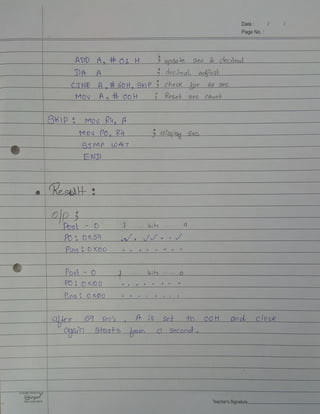 Date : / /
Page No. :
ADD A, # 01 H ; update sec to decimal
DA A ; decimal adjust
CJNE A, # 60H, SKIP ; check for 60 sec
MOV A, # 00H ; Reset sec count
SKIP : MOV R4, A
MOV P0, R4 ; display sec
SJMP WAIT
END
• Result :
O/P ;
Port - 0 7 bits 0
P0 : 0x59 . ✓ . ✓ ✓ . . ✓
Pins : 0x00 . . . . . . . .
Port - 0 7 bits 0
P0 : 0x00 . . . . . . . .
Pins : 0x00 . . . . . . . .
after 59 sec's, A is set to 00H and clock
again starts from 0 second.
Teacher's Signature